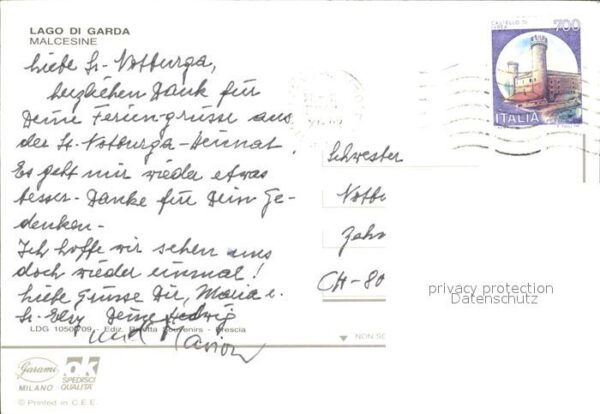 LAGO DI GARDA
MALCESINE
Liebe Sr. Notburga,
herzlichen Dank für
Deine Feriengrüsse aus
der St. Notburga-Heimat.
Es geht mir wieder etwas
besser. Danke für Dein Ge-
denken.
Ich hoffe wir sehen uns
doch wieder einmal!
Liebe Grüsse Dir, Maria u.
Sr. Elsy Deine Hedwig
und
LDG 1050/709 - Ediz. Souvenirs - Brescia
Garami
MILANO
OK
SPEDISCI
QUALITA'
© Printed in C.E.E.
CASTELLO DI
700
ITALIA
Schwester
Notbu
Zehn
CH-80
NON SC
privacy protection
Datenschutz